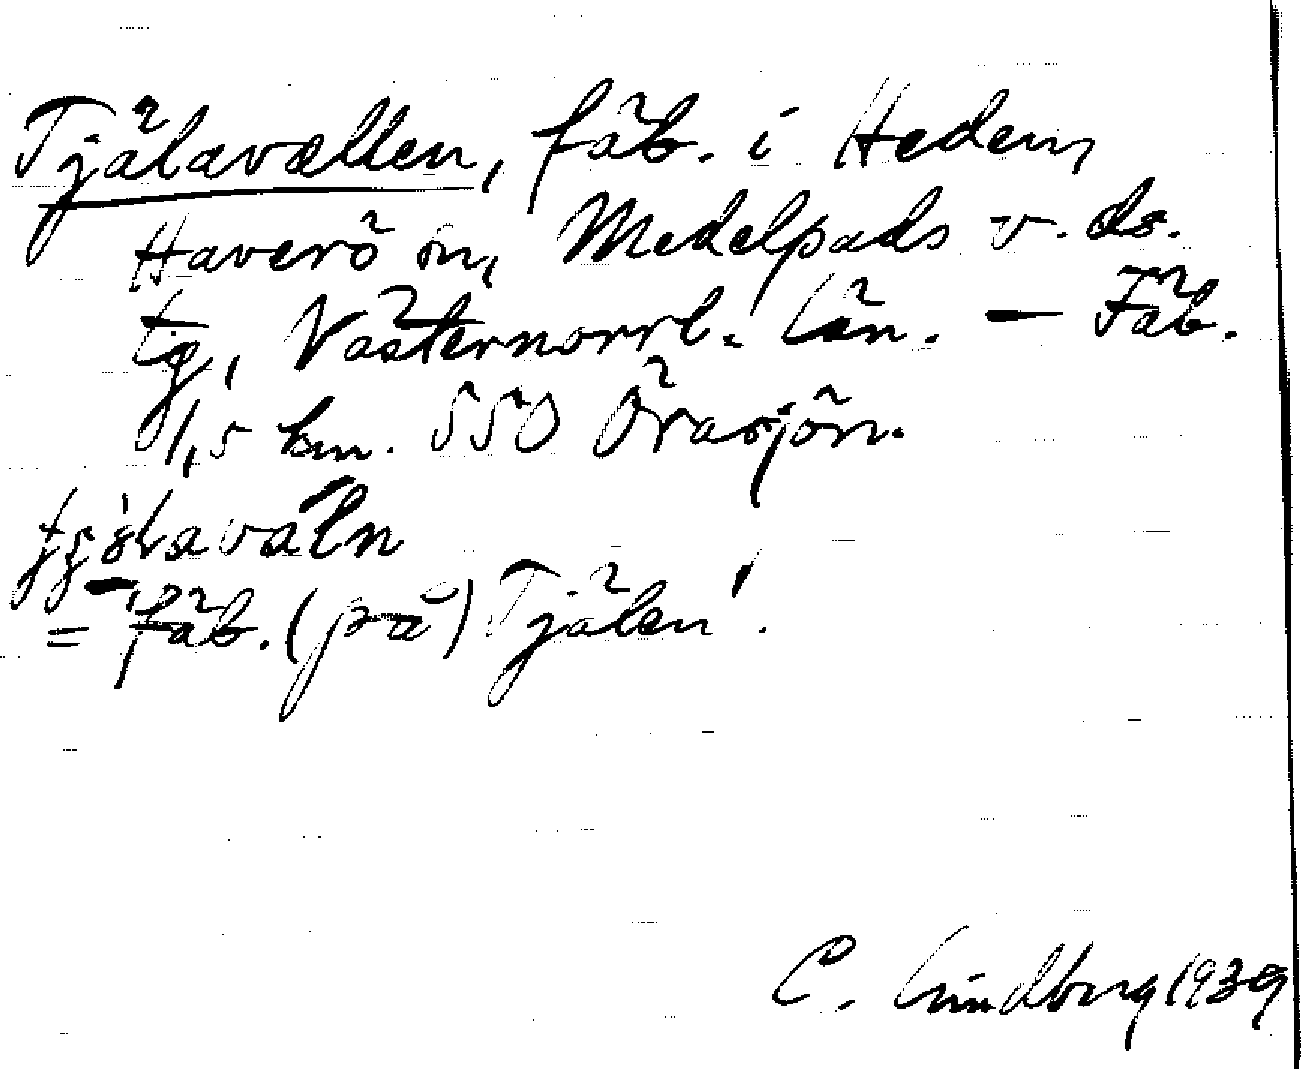 Tjälavallen, fäb. i Heden,
Haverö sn, Medelpads v. ds.
tg, Västernorrl. län. — Fäb.
1,5 km. SSO Örasjön.
= fäb. (på) Tjälen'.
C. Lindberg 1939